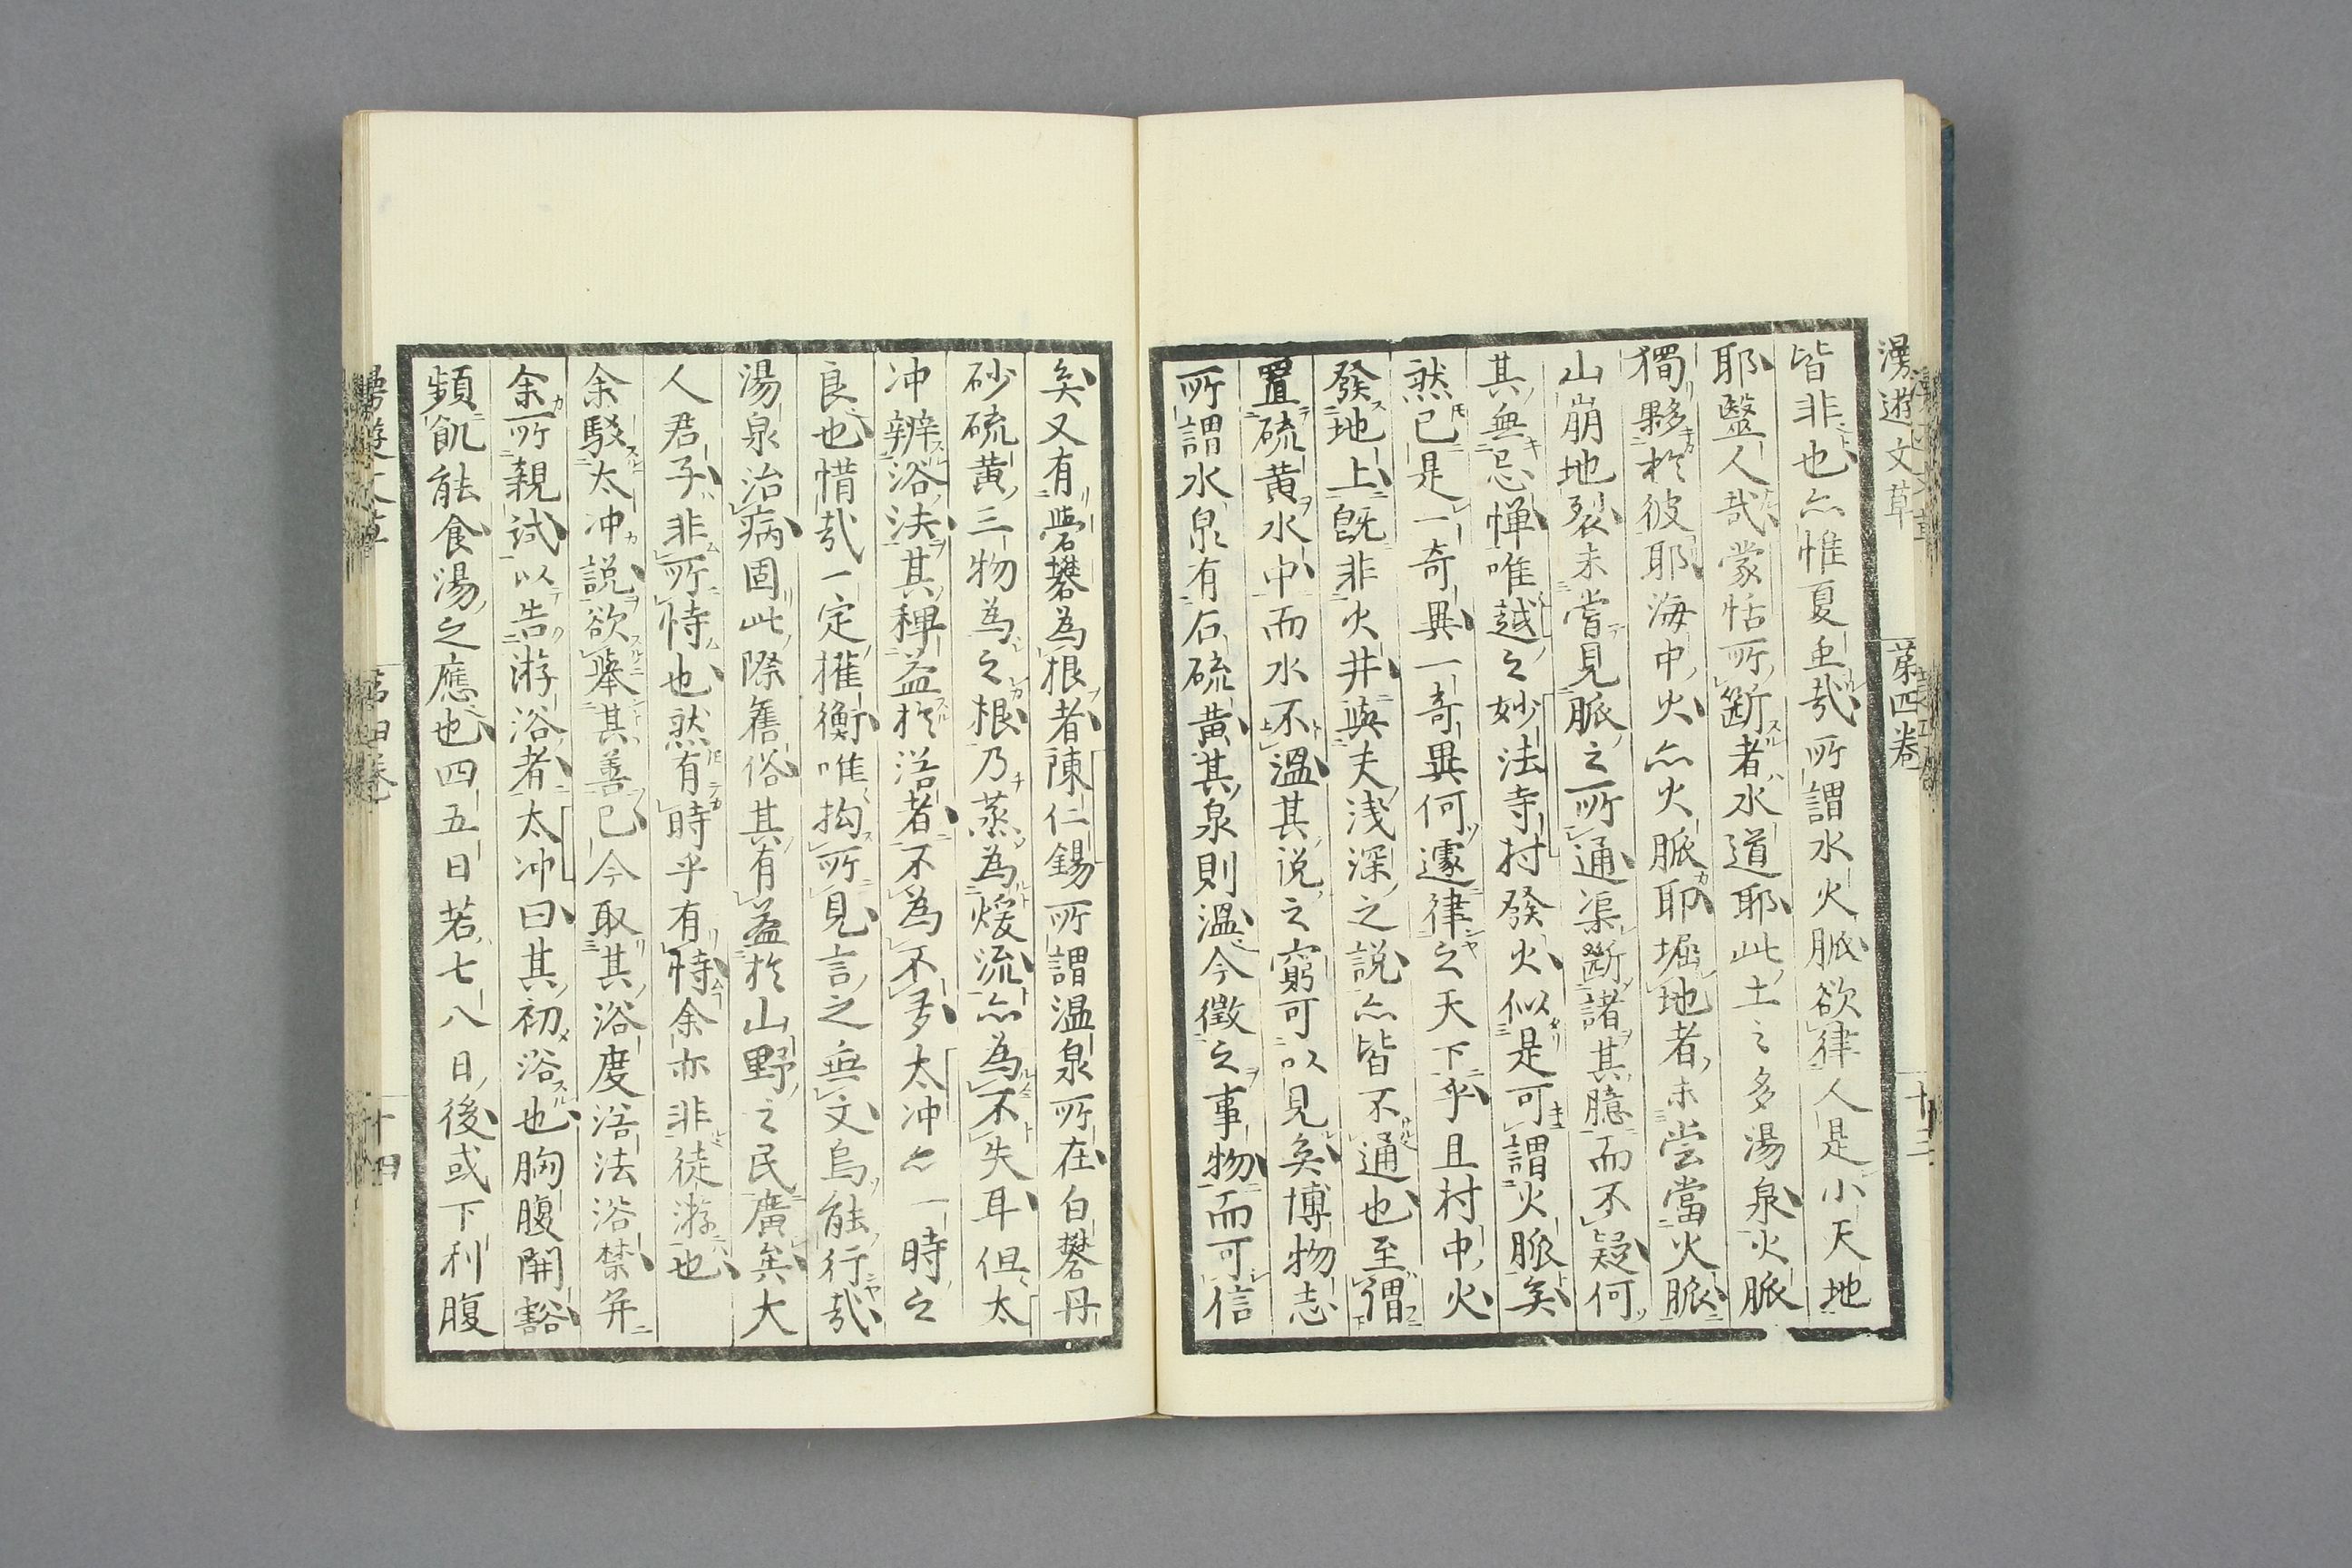 漫遊文草 第四卷 十三
皆非也亦惟夏虫哉所謂水火脈欲律人是小天地
耶毉人哉蒙恬所斷者水道耶此土之多湯泉火脈
獨夥於彼耶海中火亦火脈耶堀地者未嘗當火脈
山崩地裂未嘗見脈之所通渠斷諸其臆而不疑何
其無忌憚唯越之妙法寺村發火似是可謂火脈矣
然已是一奇異一奇異何遽律之天下乎且村中火
發地上既非火井與夫浅深之説亦皆不通也至謂
置硫黄水中而水不溫其説之窮可以見矣博物志
所謂水泉有石硫黄其泉則溫今徵之事物而可信
矣又有礜礬為根者陳仁錫所謂温泉所在白礬丹
砂硫黄三物為之根乃蒸為煖流亦為不失耳但太
冲辨浴法其稗益於浴者不為不多太冲亦一時之
良也惜哉一定權衡唯拘所見言之無文烏能行哉
湯泉治病固此際舊俗其有益於山野之民廣矣大
人君子非所恃也然有時乎有恃余亦非徒游也
余駁太冲説欲舉其善已今取其浴度浴法浴禁并
余所親試以告游浴者太冲曰其初浴也胸腹開豁
頻飢能食湯之應也四五日若七八日後或下利腹
第四卷 十四